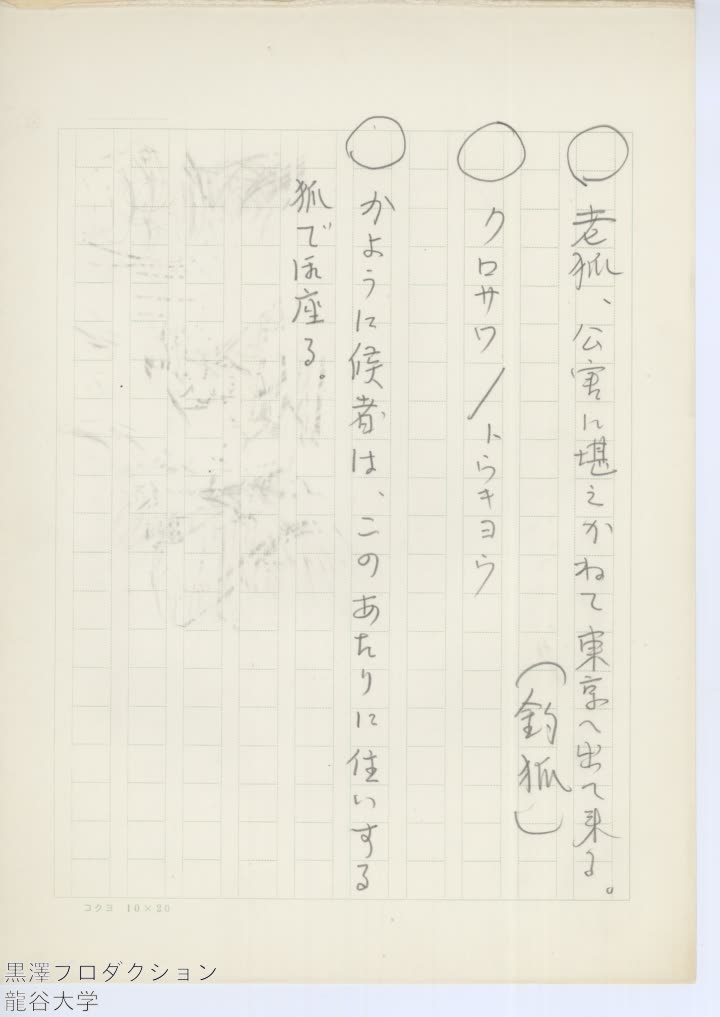 ◯ 老狐、公害に堪えかねて東京へ出て来る。
(釣狐)
◯ クロサワ/トウキヨウ
◯ かように候者は、このあたりに住いする
狐で御座る。
コクヨ 10×20
黒澤プロダクション
龍谷大学